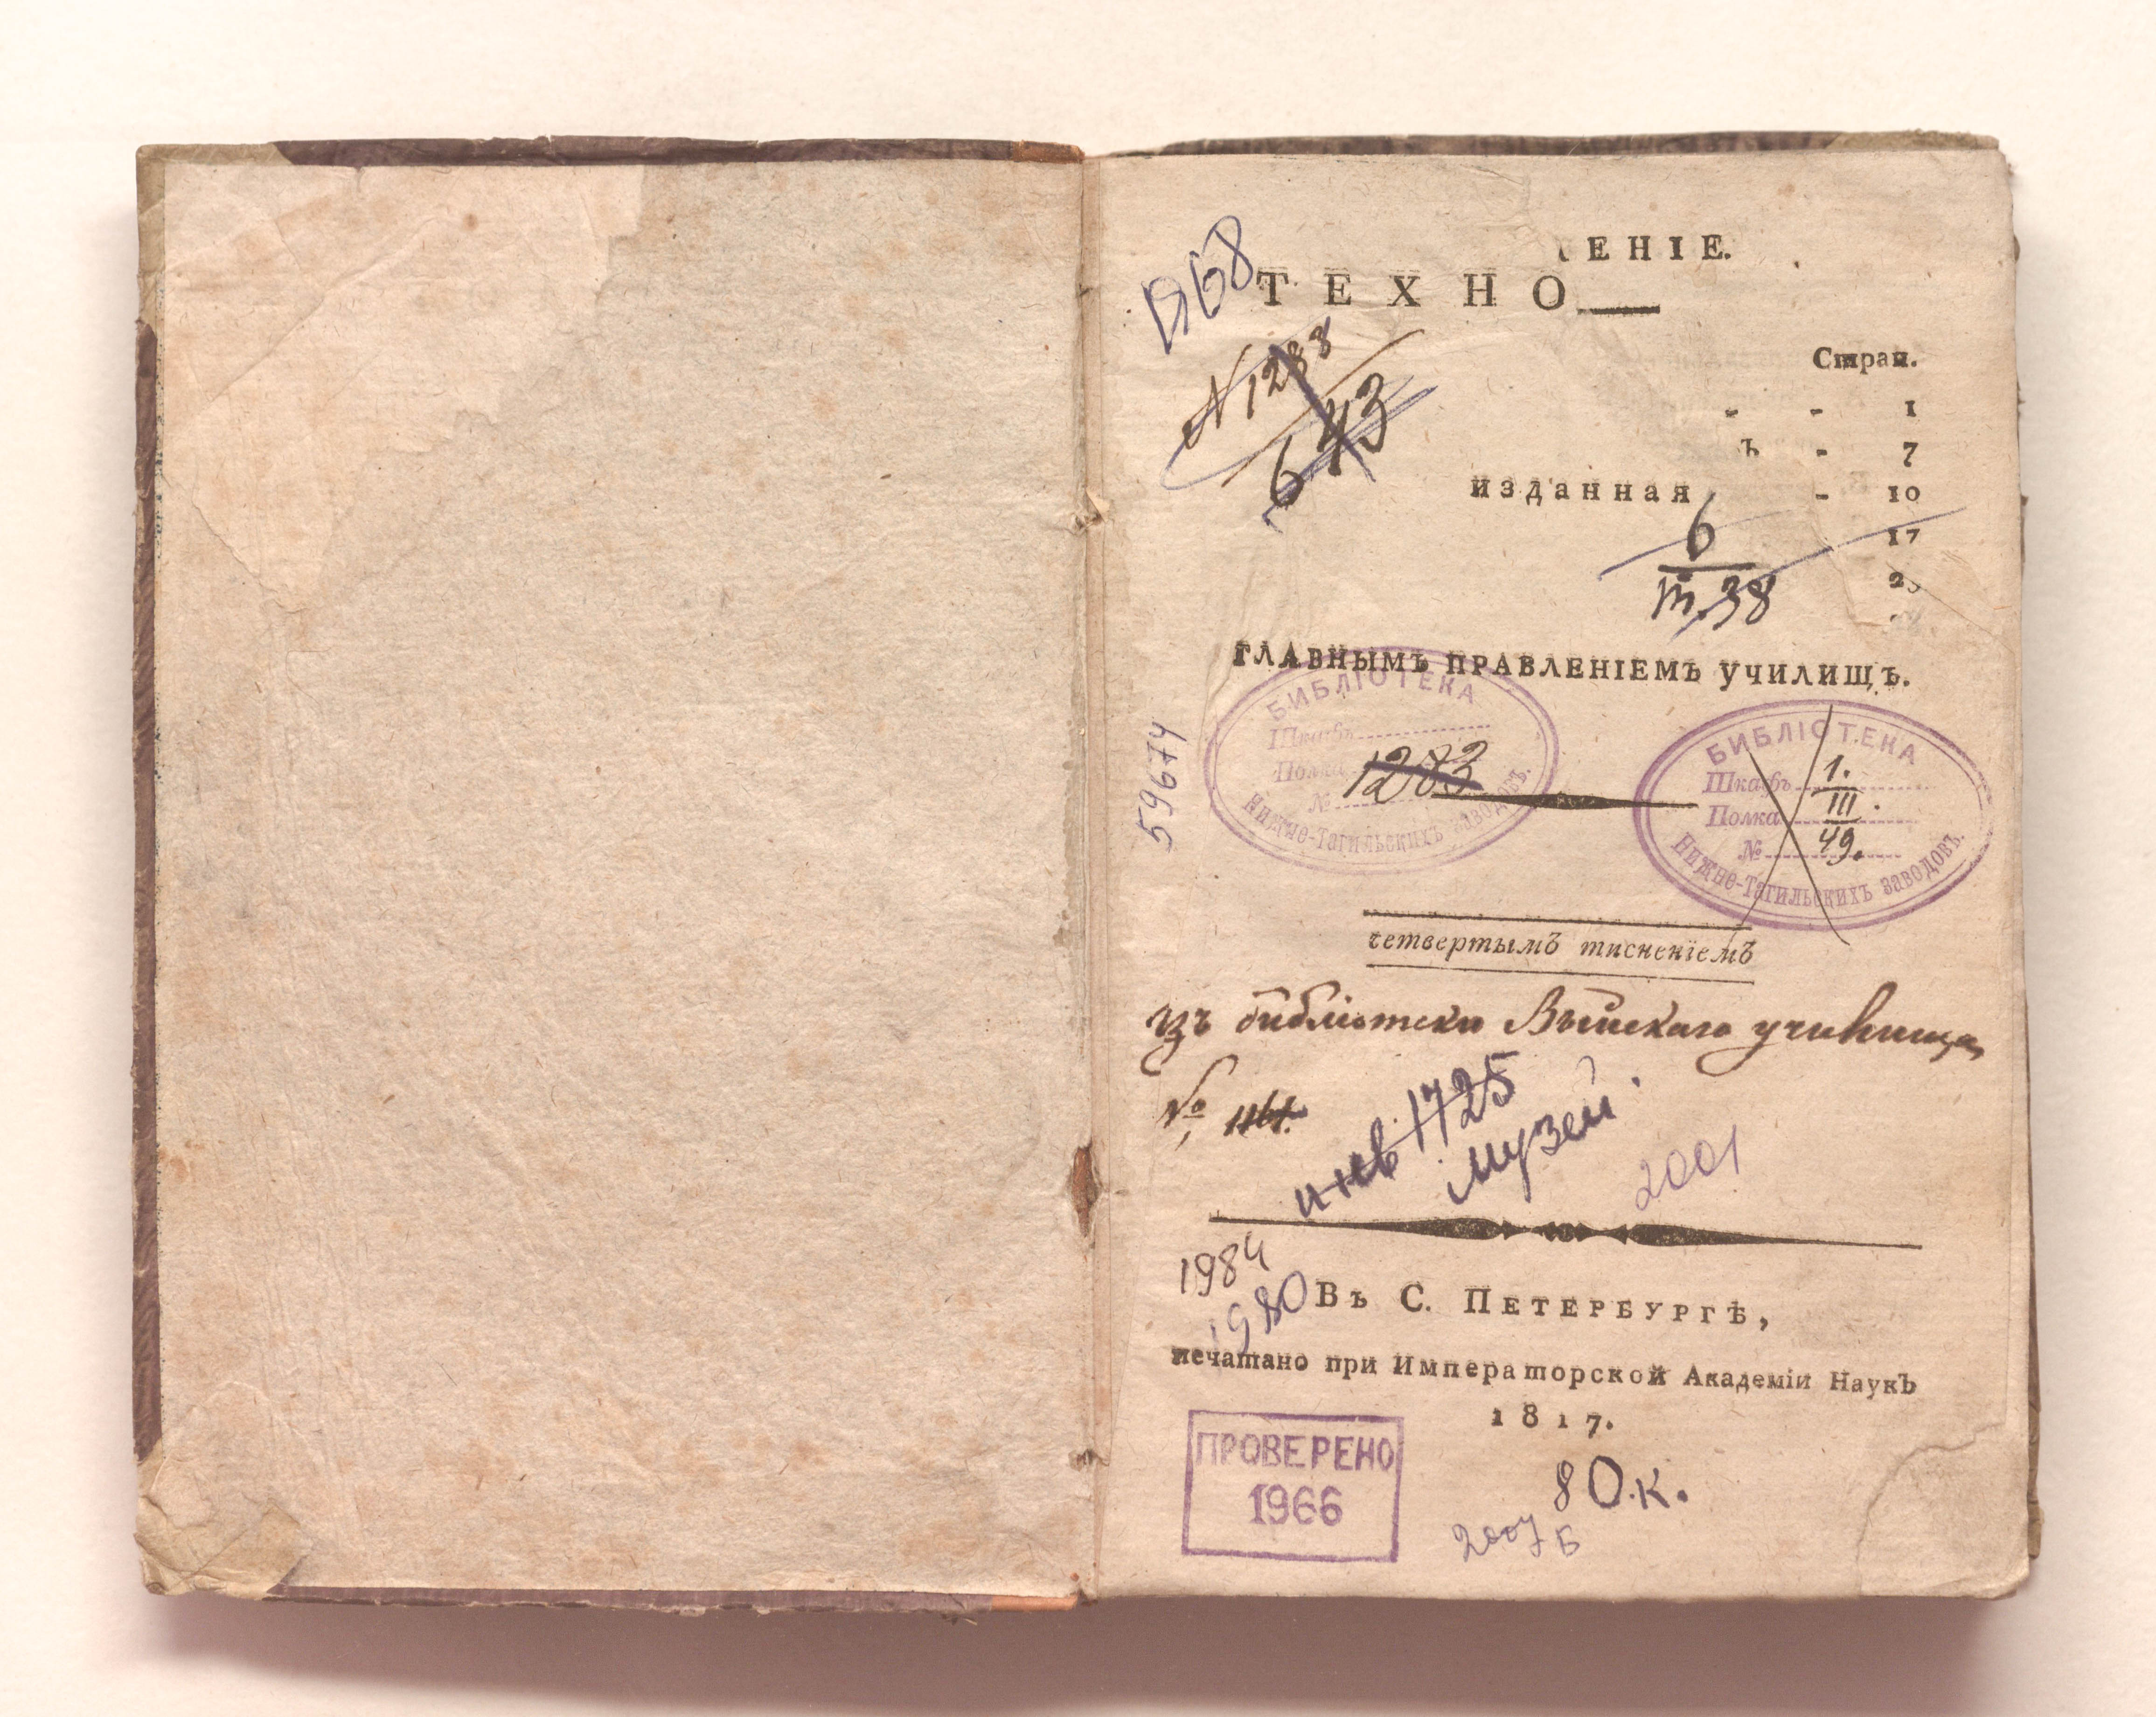 ЕНІЕ.
1968
ТЕХНО
Стран.
N 1288
643
- - 1
ъ - 7
изданная - 10
17
6
III.38
ГЛАВНЫМЪ ПРАВЛЕНІЕМЪ УЧИЛИЩЪ.
БИБЛІОТЕКА
Шкафъ
Полка
№
1283
Нижне-Тагильскихъ заводовъ.
БИБЛІОТЕКА
Шкафъ 1.
Полка III.
№ 49.
Нижне-Тагильскихъ заводовъ.
59674
четвертымъ тисненіемъ
Изъ библіотеки Выйскаго училища
№ 1161.
инв 1725
музей.
2001
1984
1980
Въ С. ПЕТЕРБУРГѢ,
печатано при Императорской Академіи Наукъ
1817.
ПРОВЕРЕНО
1966
80.к.
2007
Б